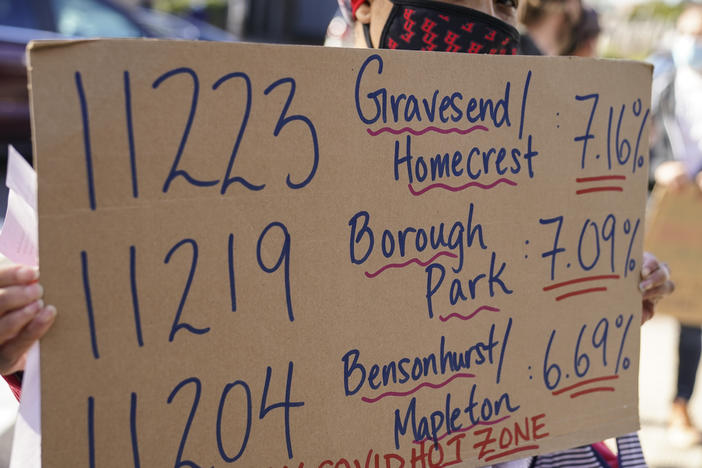 11223 Gravesend/ : 7.16%
Homecrest
11219 Borough : 7.09%
Park
11204 Bensonhurst/ : 6.69%
Mapleton
COVID HOT ZONE